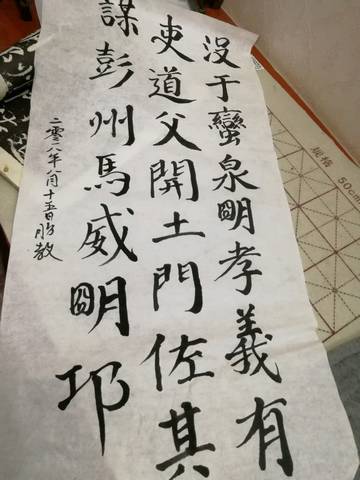 没于蠻泉明孝義有
吏道父開土門佐其
謀彭州馬威明邛
二零一八年八月十五日
规格 50cm